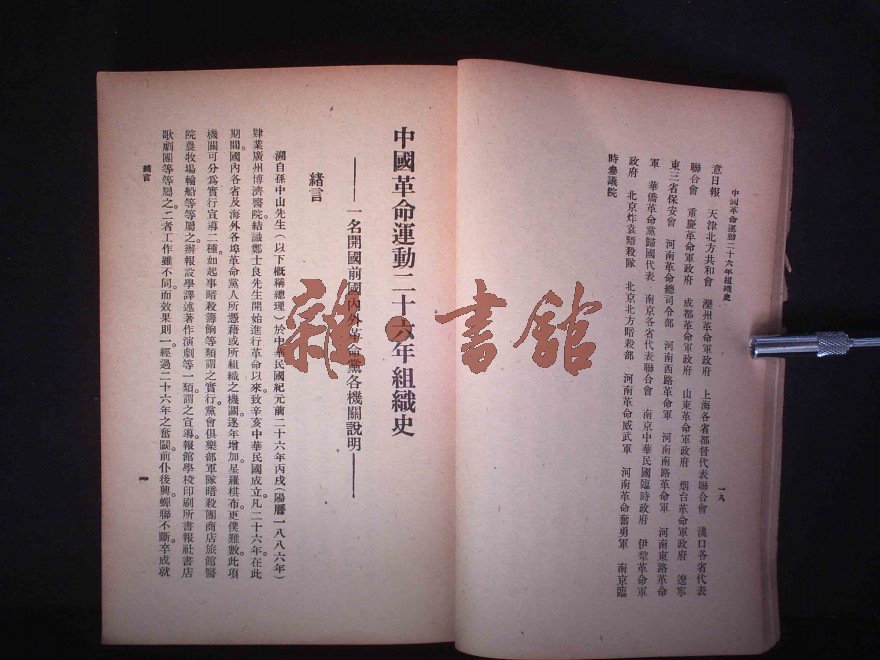 中國革命運動二十六年組織史
一八
意日報　天津北方共和會　灤州革命軍政府　上海各省都督代表聯合會　漢口各省代表
聯合會　重慶革命軍政府　成都革命軍政府　山東革命軍政府　烟台革命軍政府　遼寧
東三省保安會　河南革命總司令部　河南西路革命軍　河南南路革命軍　河南東路革命
軍　華僑革命黨歸國代表　南京各省代表聯合會　南京中華民國臨時政府　伊犂革命軍
政府　北京炸袁暗殺隊　北京北方暗殺部　河南革命威武軍　河南革命奮勇軍　南京臨
時參議院
中國革命運動二十六年組織史
——一名開國前國內外革命黨各機關說明——
緒言
溯自孫中山先生（以下槪稱總理）於中華民國紀元前二十六年丙戌（陽曆一八八六年）
肄業廣州博濟醫院結識鄭士良先生開始進行革命以來致辛亥中華民國成立。凡二十六年在此
期間。國內各省及海外各埠革命黨人所憑藉或所組織之機關。逐年增加。星羅棋布。更僕難數。此項
機關可分爲實行宣導二種。如起事暗殺籌餉等類謂之實行。黨會俱樂部軍隊暗殺團商店旅館醫
院農牧場輪船等等屬之。辦報設學譯述著作演劇等一類謂之宣導。報館學校印刷所書報社書店
歌劇團等等屬之。二者工作雖不同。而效果則一。經過二十六年之奮鬭。前仆後興。蟬聯不斷。卒成就
緒言
一
雜·書館